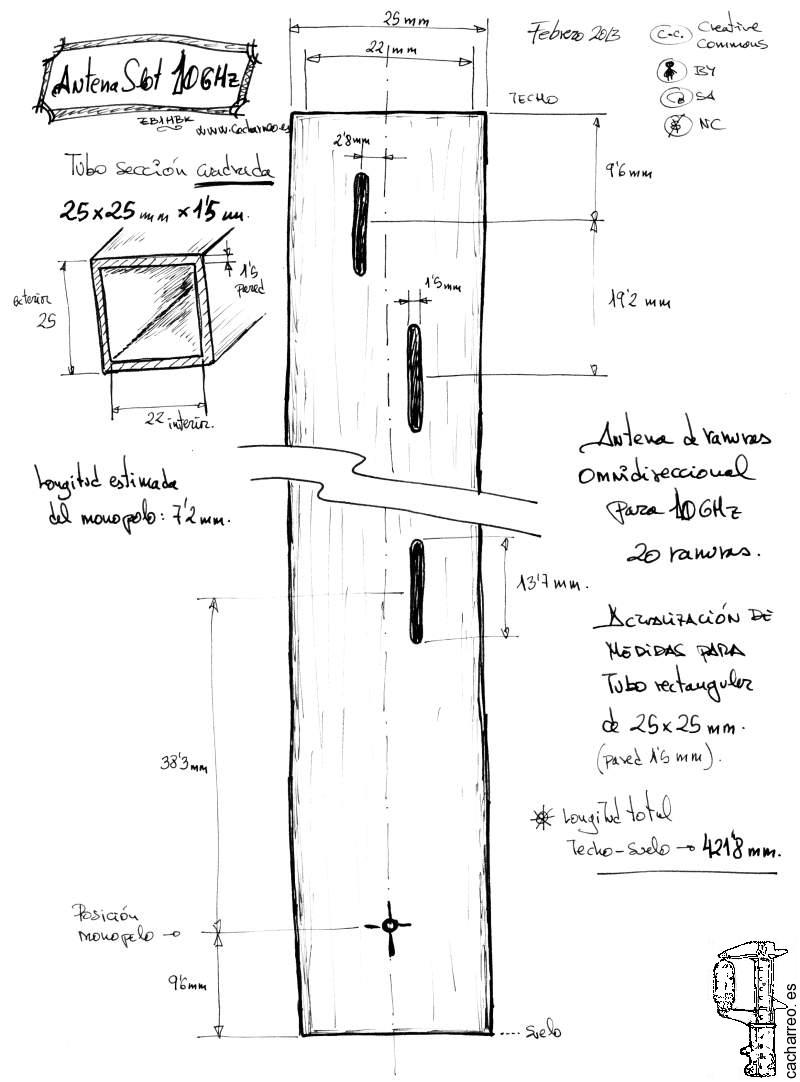 25 mm
22 mm
Febrero 2013
c.c.
Creative
Commons
BY
SA
NC
Antena Slot 10GHz
EB1HBK
www.cacharreo.es
TECHO
Tubo sección cuadrada
25x25 mm x 1'5 mm.
2'8mm
9'6 mm
1'5
pared
exterior
25
22 interior.
1'5mm
19'2 mm
Antena de ranuras
Omnidireccional
para 10GHz
20 ranuras.
Longitud estimada
del monopolo: 7'2 mm.
13'7 mm.
Actualización DE
MEDIDAS PARA
Tubo rectangular
de 25x25 mm.
(pared 1'5 mm).
38'3 mm
Longitud total
Techo-Suelo → 421'8 mm.
Posición
monopolo
9'6mm
Suelo
cacharreo.es